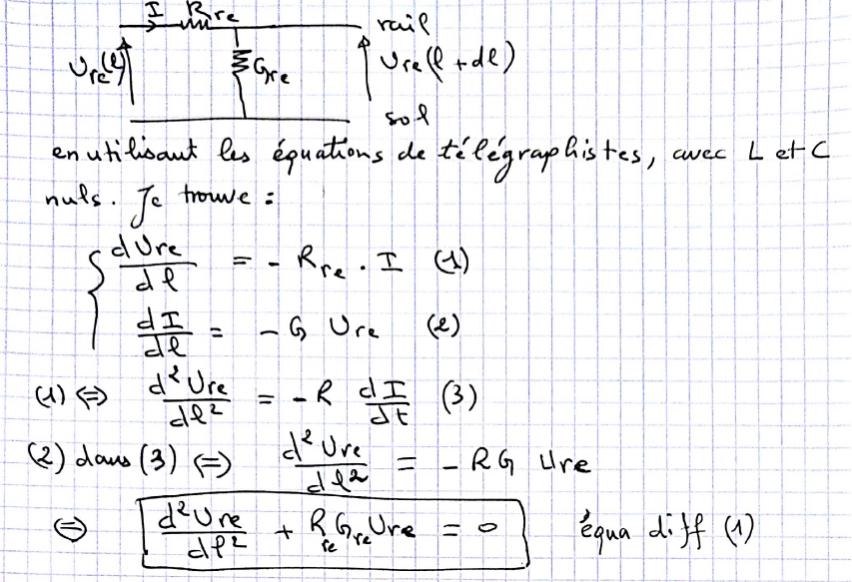 I R_re rail
U_re(l) G_re U_re(l + dl)
sol
en utilisant les équations de télégraphistes, avec L et C
nuls. Je trouve :
dU_re/dl = - R_re . I (1)
dI/dl = - G U_re (2)
(1) ⇔ d²U_re/dl² = - R dI/dt (3)
(2) dans (3) ⇔ d²U_re/dl² = - RG U_re
⇔ d²U_re/dl² + R_re G_re U_re = 0 équa diff (1)